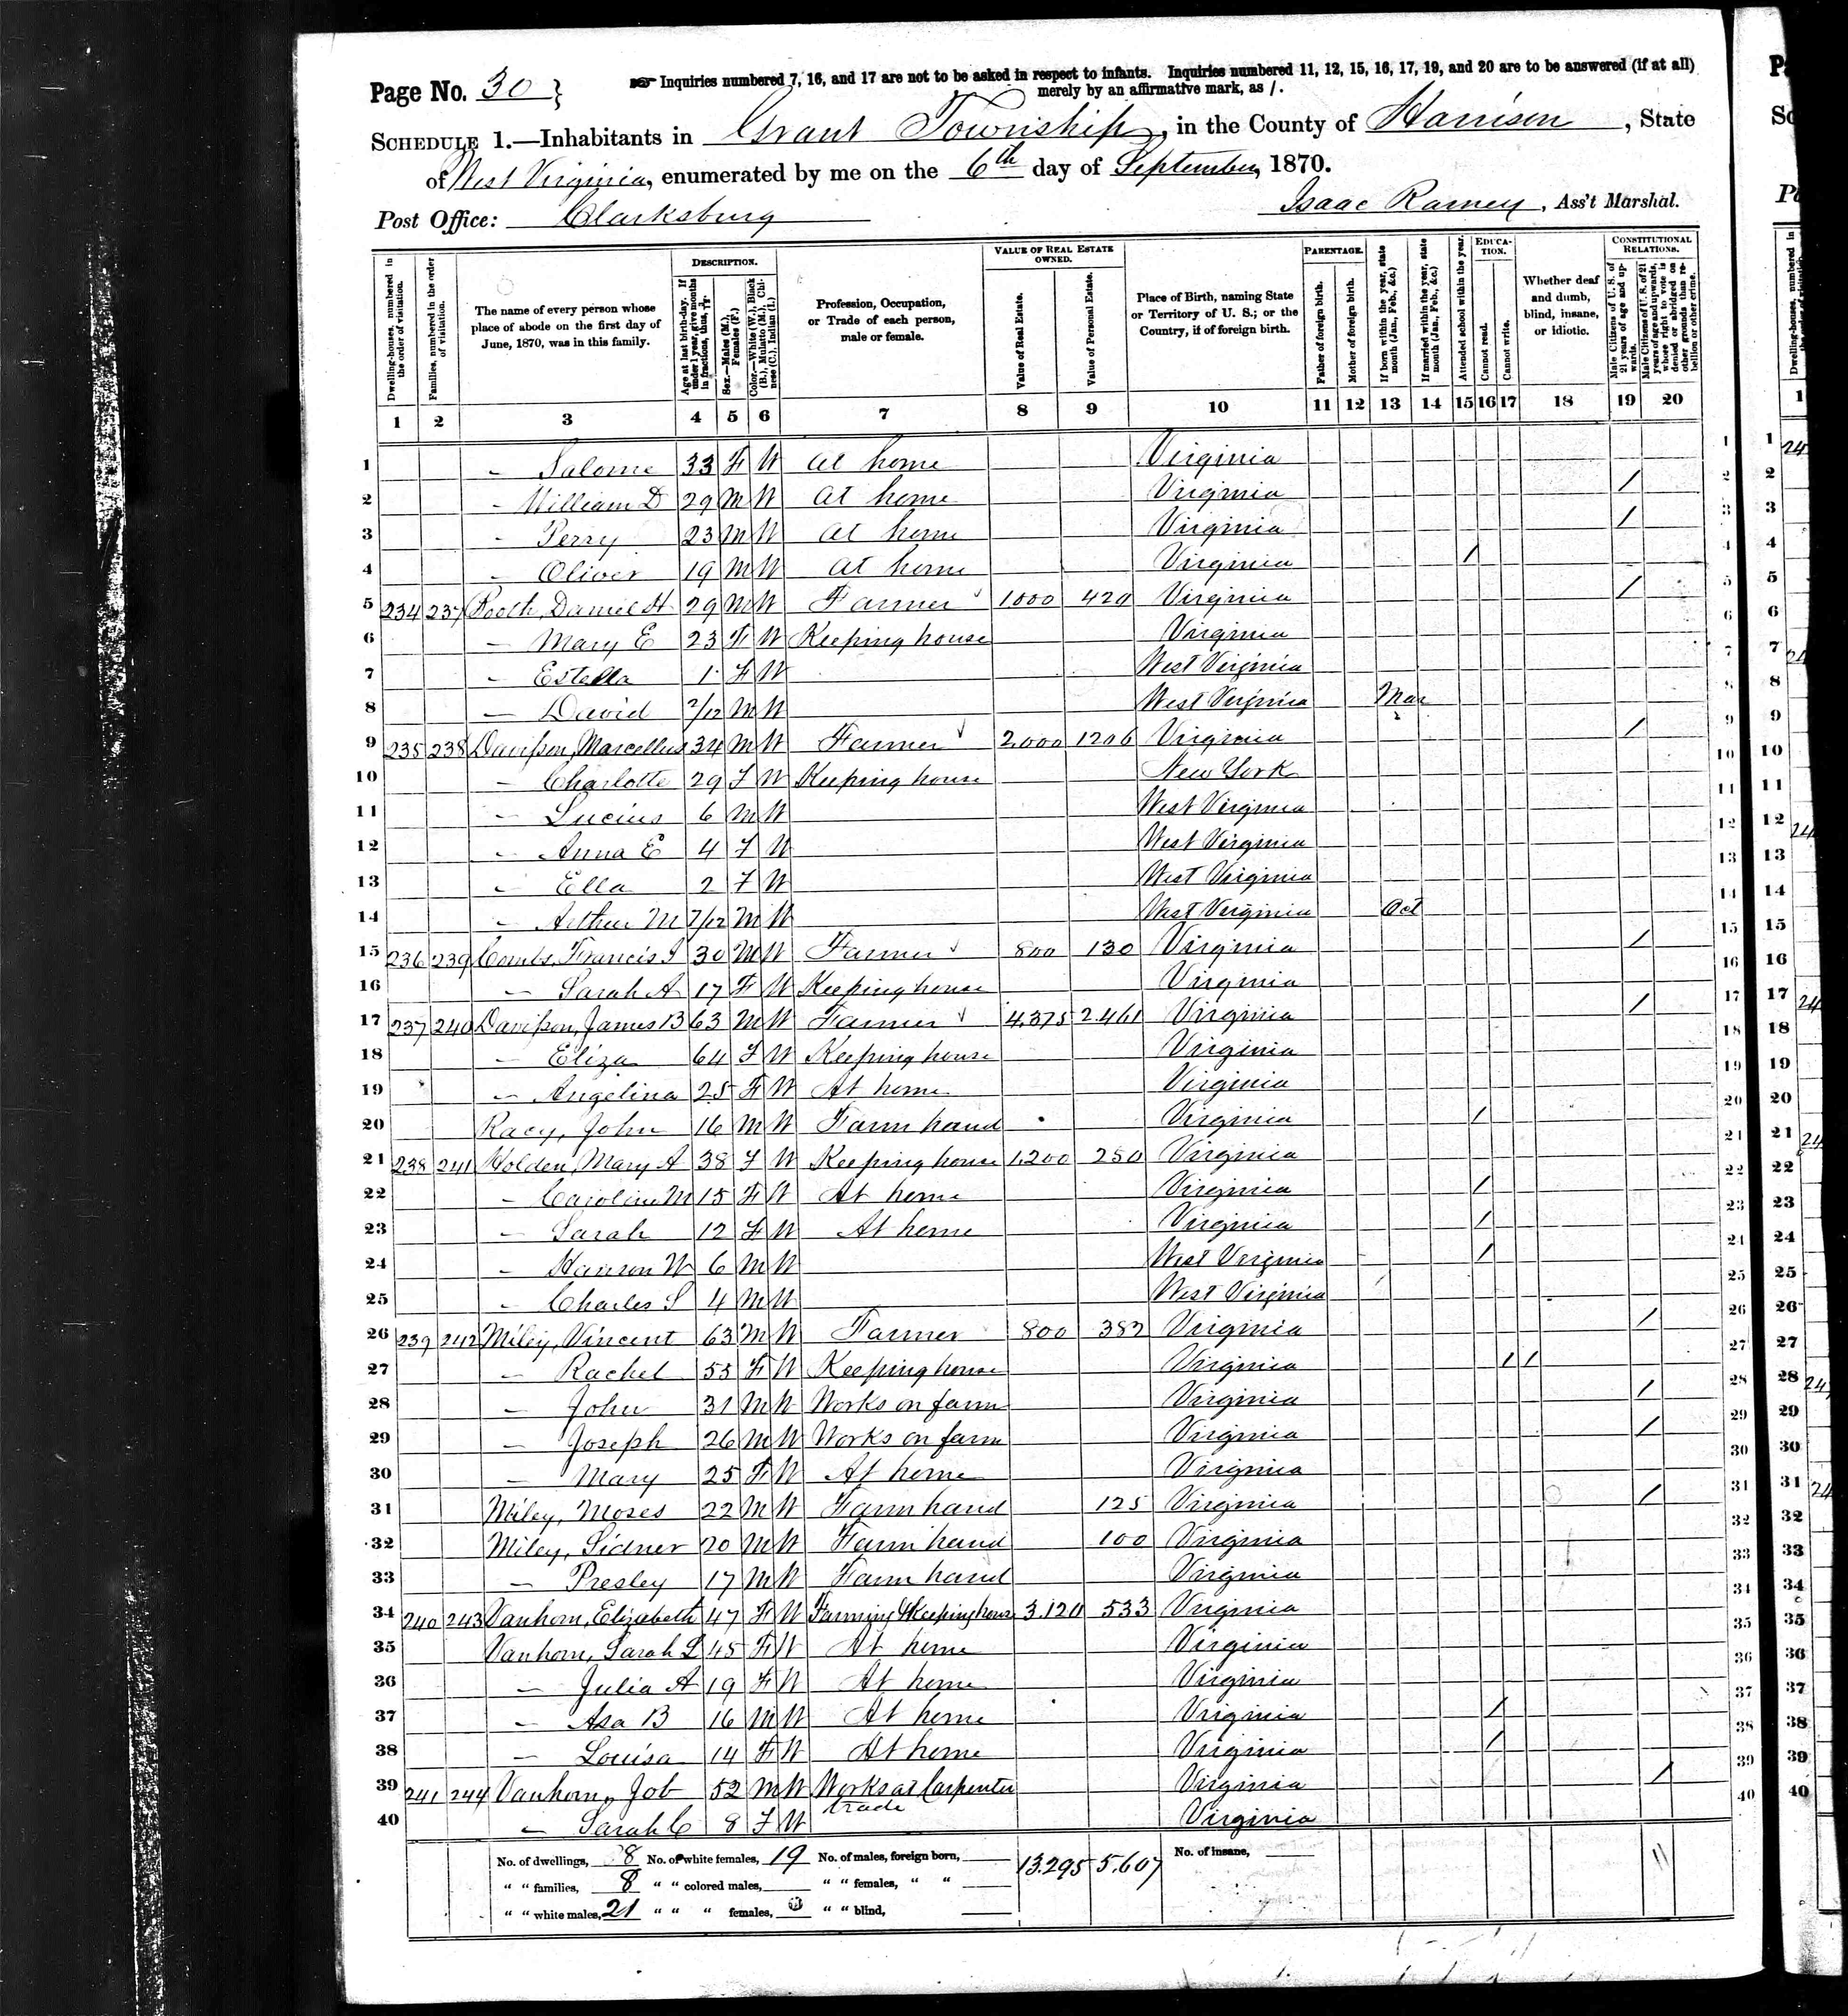 Page No. 30 }
☞ Inquiries numbered 7, 16, and 17 are not to be asked in respect to infants. Inquiries numbered 11, 12, 15, 16, 17, 19, and 20 are to be answered (if at all)
merely by an affirmative mark, as /.
SCHEDULE 1.—Inhabitants in Grant Township, in the County of Harrison, State
of West Virginia, enumerated by me on the 6th day of September, 1870.
Post Office: Clarksburg
Isaac Ramey, Ass't Marshal.
Dwelling-houses, numbered in the order of visitation.
Families, numbered in the order of visitation.
The name of every person whose place of abode on the first day of June, 1870, was in this family.
DESCRIPTION.
Age at last birth-day. If under 1 year, give months in fractions, thus, 3/12.
Sex.—Males (M.), Females (F.)
Color.—White (W.), Black (B.), Mulatto (M.), Chinese (C.), Indian (I.)
Profession, Occupation, or Trade of each person, male or female.
VALUE OF REAL ESTATE OWNED.
Value of Real Estate.
Value of Personal Estate.
Place of Birth, naming State or Territory of U. S.; or the Country, if of foreign birth.
PARENTAGE.
Father of foreign birth.
Mother of foreign birth.
If born within the year, state month (Jan., Feb., &c.)
If married within the year, state month (Jan., Feb., &c.)
Attended school within the year.
EDUCATION.
Cannot read.
Cannot write.
Whether deaf and dumb, blind, insane, or idiotic.
CONSTITUTIONAL RELATIONS.
Male Citizens of U. S. of 21 years of age and upwards.
Male Citizens of U. S. of 21 years of age and upwards, whose right to vote is denied or abridged on other grounds than rebellion or other crime.
1 2 3 4 5 6 7 8 9 10 11 12 13 14 15 16 17 18 19 20
1 — Salome 33 F W At home Virginia 1
2 — William D 29 M W At home Virginia / 2
3 — Perry 23 M W At home Virginia / 3
4 — Oliver 19 M W At home Virginia / 4
5 234 237 Booth, Daniel H 29 M W Farmer 1000 429 Virginia / 5
6 — Mary E 23 F W Keeping house Virginia 6
7 — Estella 1 F W West Virginia 7
8 — David 2/12 M W West Virginia Mar 8
9 235 238 Davisson, Marcellus 34 M W Farmer 2,000 1206 Virginia / 9
10 — Charlotte 29 F W Keeping house New York 10
11 — Lucius 6 M W West Virginia 11
12 — Anna E 4 F W West Virginia 12
13 — Ella 2 F W West Virginia 13
14 — Arthur M 7/12 M W West Virginia Oct 14
15 236 239 Combs, Francis J 30 M W Farmer 800 130 Virginia / 15
16 — Sarah A 17 F W Keeping house Virginia 16
17 237 240 Davisson, James B 63 M W Farmer 4,375 2,461 Virginia / 17
18 — Eliza 64 F W Keeping house Virginia 18
19 — Angelina 25 F W At home Virginia 19
20 Racy, John 16 M W Farm hand Virginia / 20
21 238 241 Holden, Mary A 38 F W Keeping house 1,200 250 Virginia 21
22 — Caroline M 15 F W At home Virginia / 22
23 — Sarah 12 F W At home Virginia / 23
24 — Hanson W 6 M W West Virginia / 24
25 — Charles S 4 M W West Virginia 25
26 239 242 Miley, Vincent 63 M W Farmer 800 382 Virginia / 26
27 — Rachel 55 F W Keeping house Virginia / / 27
28 — John 31 M W Works on farm Virginia / 28
29 — Joseph 26 M W Works on farm Virginia / 29
30 — Mary 25 F W At home Virginia 30
31 Miley, Moses 22 M W Farm hand 125 Virginia / 31
32 Miley, Sidner 20 M W Farm hand 100 Virginia 32
33 — Presley 17 M W Farm hand Virginia 33
34 240 243 Vanhorn, Elizabeth 47 F W Farming & Keeping house 3,120 533 Virginia 34
35 Vanhorn, Sarah L 45 F W At home Virginia 35
36 — Julia A 19 F W At home Virginia 36
37 — Asa B 16 M W At home Virginia / 37
38 — Louisa 14 F W At home Virginia / 38
39 241 244 Vanhorn, Job 52 M W Works at Carpenter Virginia / 39
trade
40 — Sarah C 8 F W Virginia 40
No. of dwellings, 8 No. of white females, 19 No. of males, foreign born, 13,295 5,607 No. of insane, 11
" " families, 8 " " colored males, " " females, " "
" " white males, 21 " " " females, " " blind,